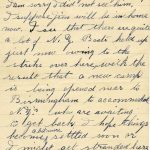 I am sorry I did not see him,
I suppose Jim will be home
now. I see that there is quite
a lot of N.Z. Boats held up
just now owing to the
strike over here, with the
result that a new camp
is being opened near to
Birmingham to accommodate
N.Z. who are waiting
to get back. I hope things
are settled soon or
I might get stranded here